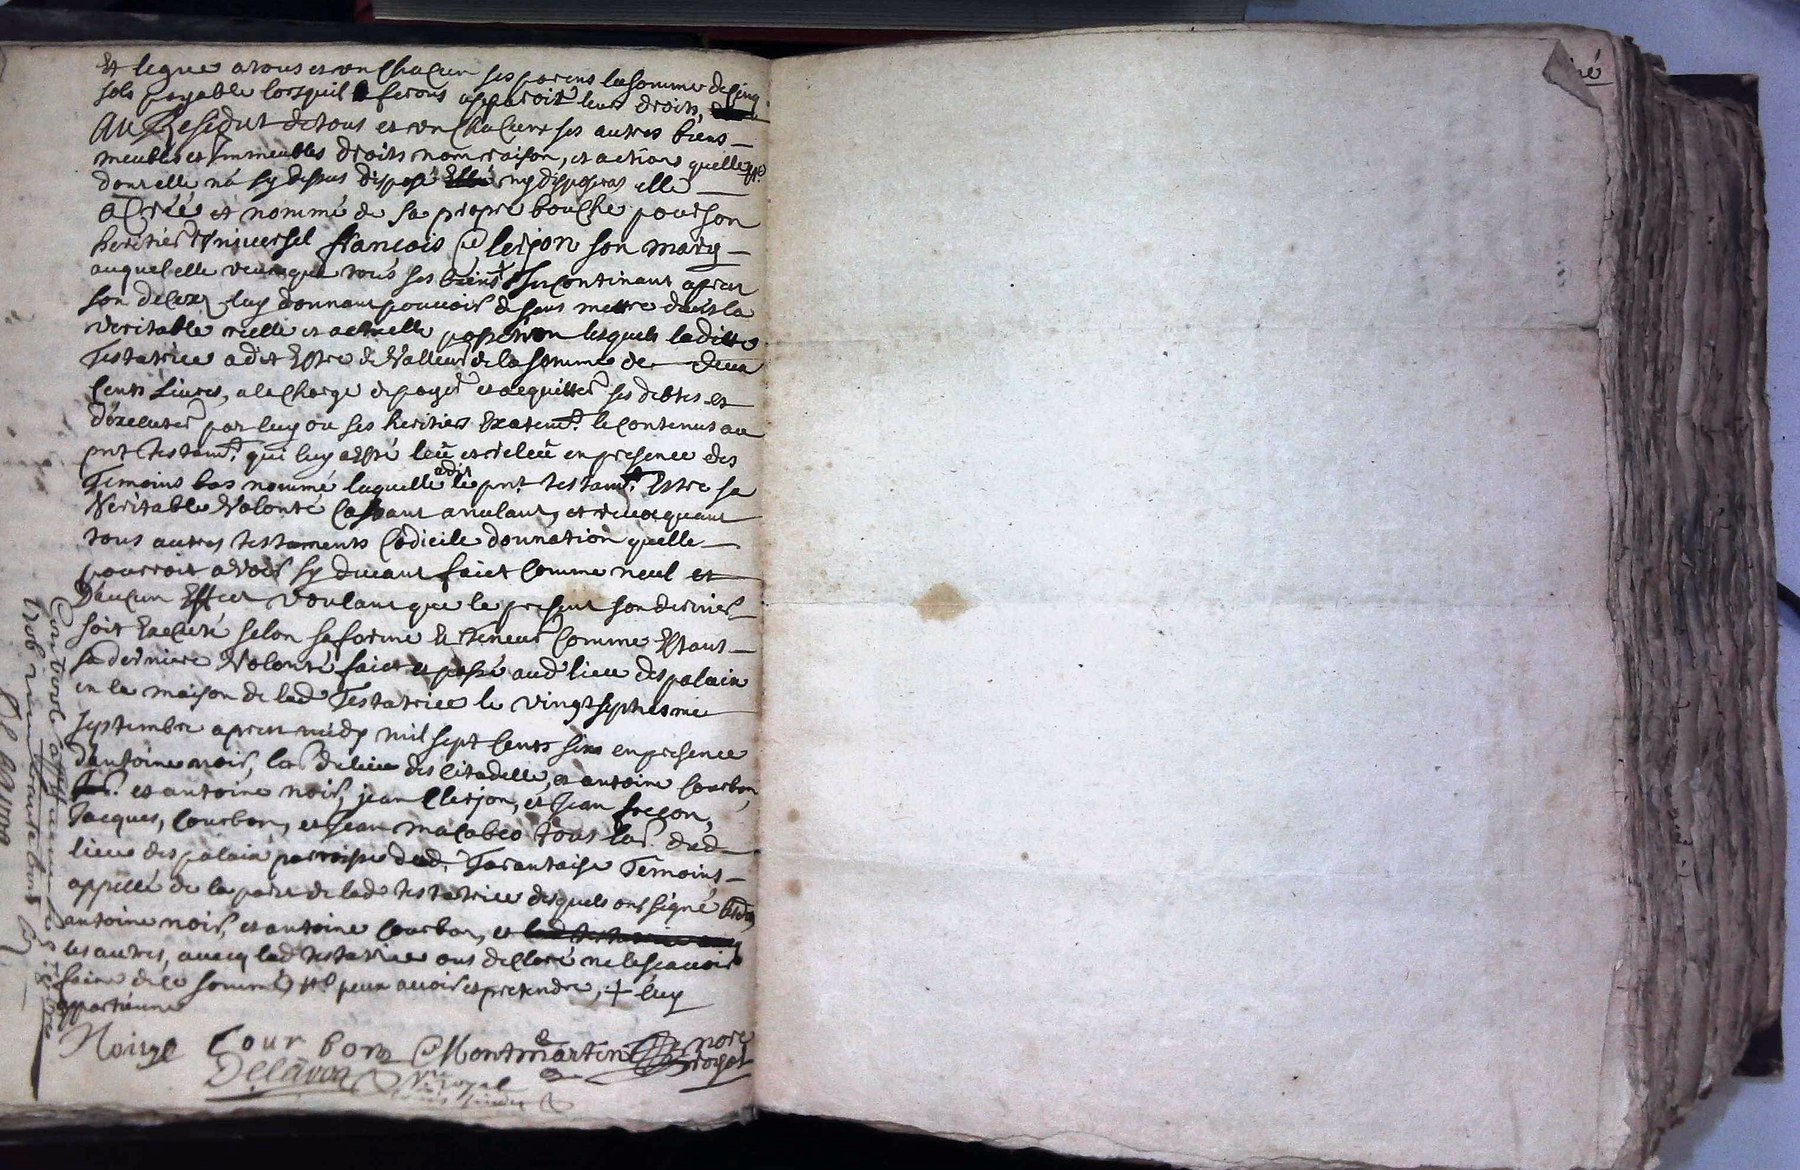 Et legue a tous et un chacun ses parens la somme de cinq
sols payable lorsquil feront apparoir leurs droits,
Au Residut de tous et un chacune ses autres biens
meubles et Immeubles droits nom raison, et actions quelle
dont elle na sy dessus disposé ny disposeras elle
a Créé et nommé de sa propre bouche pour son
heritier Universel francois Clerjon son mary
auquel elle veut que tous ses biens + Incontinant apres
son deces luy donnant pouvoir de sens mettre dans la
veritable reelle et actuelle possétion lesquels laditte
Testatrice a dit Estre de Valleur de la somme de deux
Cents Livres, a la Charge de payer et acquitter ses debtes et
d'éxecuter par luy ou ses heritiers Exatemt. le contenus au
pnt testamt. qui luy a Esté leü et releü en presence des
Temoins bas nommé laquelle a dit le pnt. testamt. Estre sa
Veritable Volonté Cassant anulant, et revocquant
tous autres testaments Codicile donnation quelle
pourroit avoir sy devant faict Comme neul et
D'aucun Effect voulant que le present son dernier
soit Executé selon sa forme Et teneur Comme Estant
sa derniere Volonté faict et passé aud lieu des palain
en la maison de lad Testatrice le vingt septiesme
septembre apres midy mil sept Cents six en presence
d'antoine noir, lar. du lieu des Citadelle, et antoine Courbon,
et antoine noir, jean Clerjon, et Jean
Jacques, Courbon, et Jean macabeo tous lar. dud
lieu des palain parroisse dud. Tarantaise Temoins
appellé de la part de lad testatrice desquels ont signé lesd
antoine noir, et antoine Courbon, et
les autres, avecq lad testatrice ont declaré ne le scavoir
faire de ce sommés peut avoir et pretendre, + luy
appartienne
Courbon Montmartin
Delavoa
royal
Controlé a St